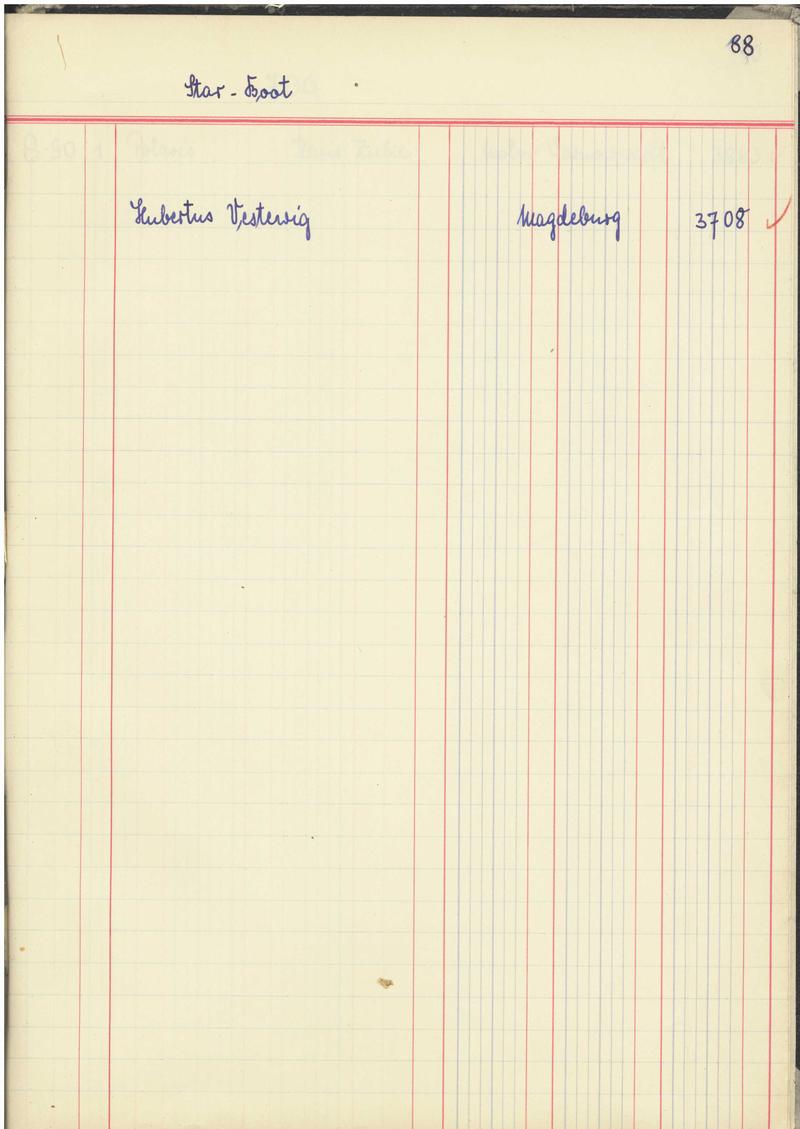 88
Star-Boot
Hubertus Vesterwig Magdeburg 3708